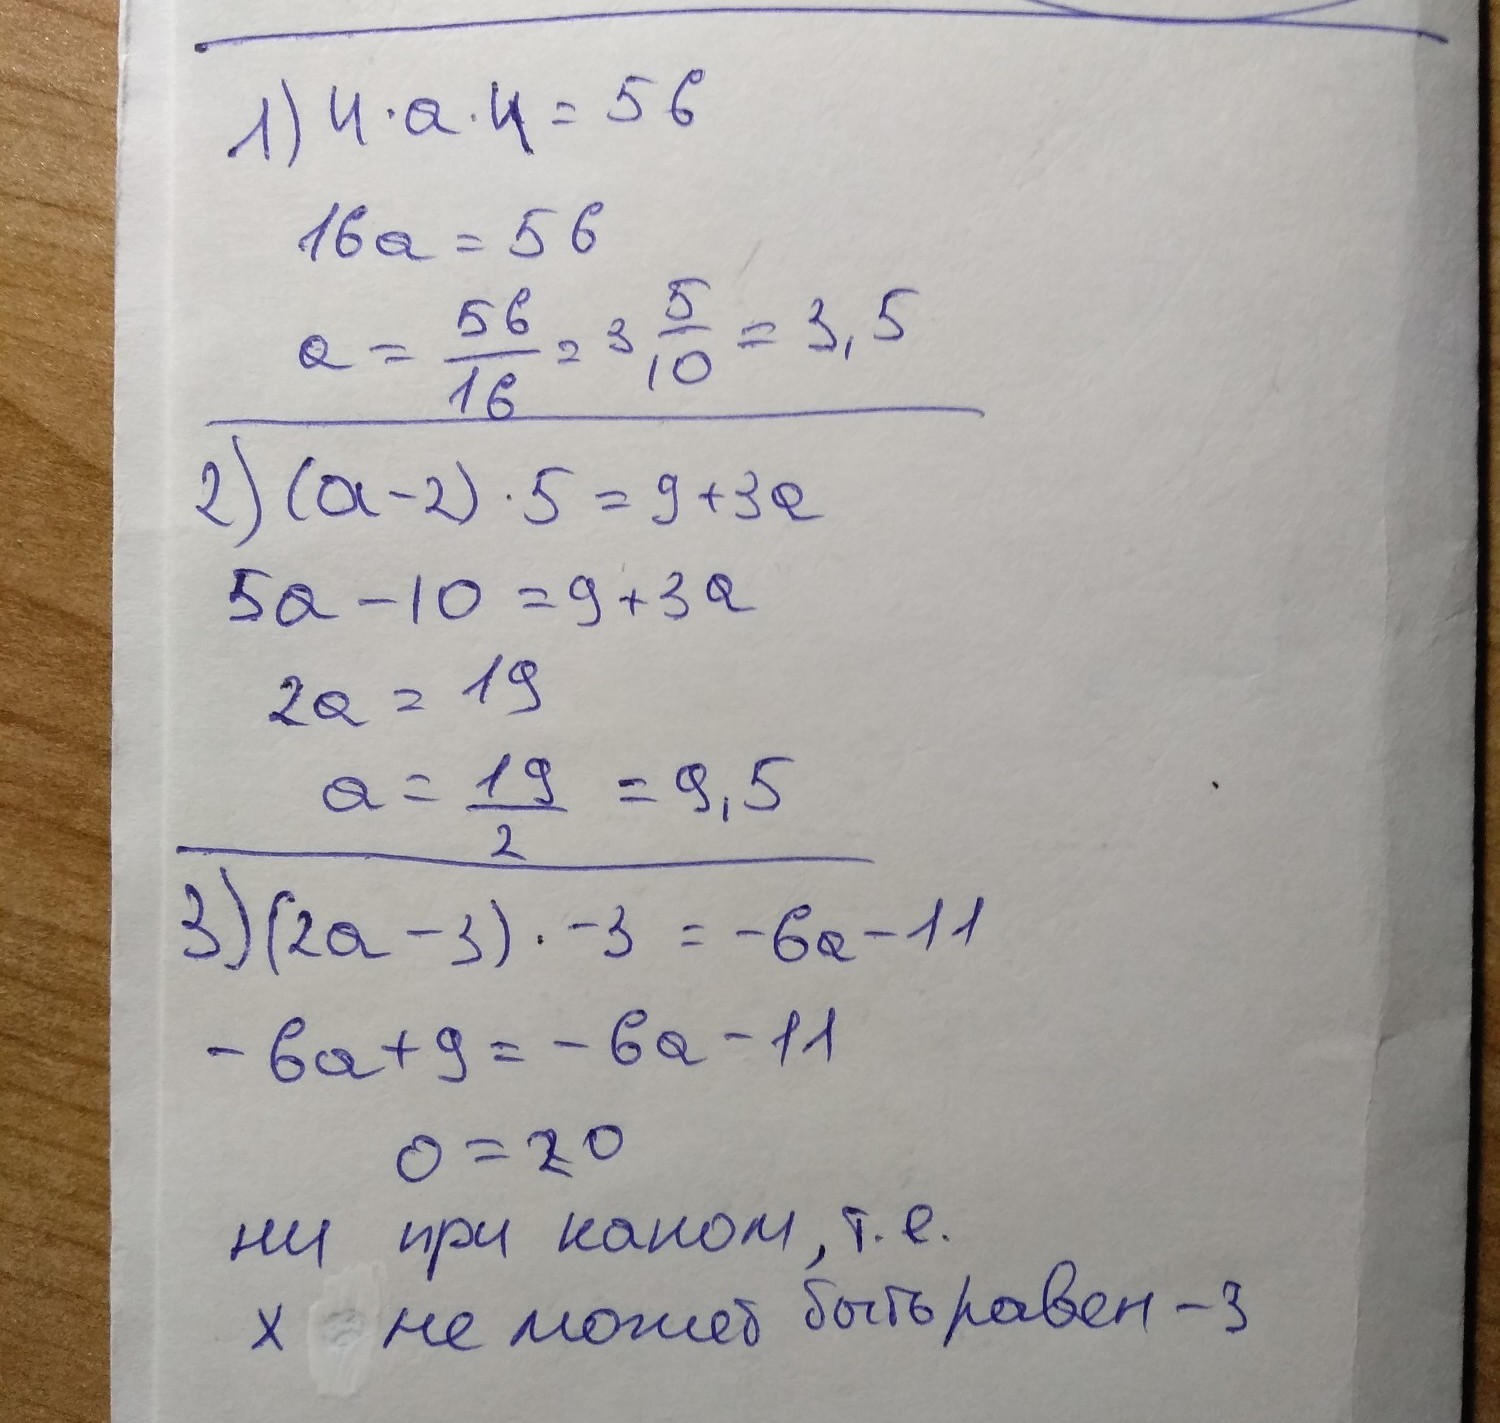 1) 4·a·4 = 56
16a = 56
a = 56/16 = 3 5/10 = 3,5
2) (a-2)·5 = 9+3a
5a-10 = 9+3a
2a = 19
a = 19/2 = 9,5
3) (2a-3)·-3 = -6a-11
-6a+9 = -6a-11
0 = 20
ни при каком, т.е.
х не может быть равен -3